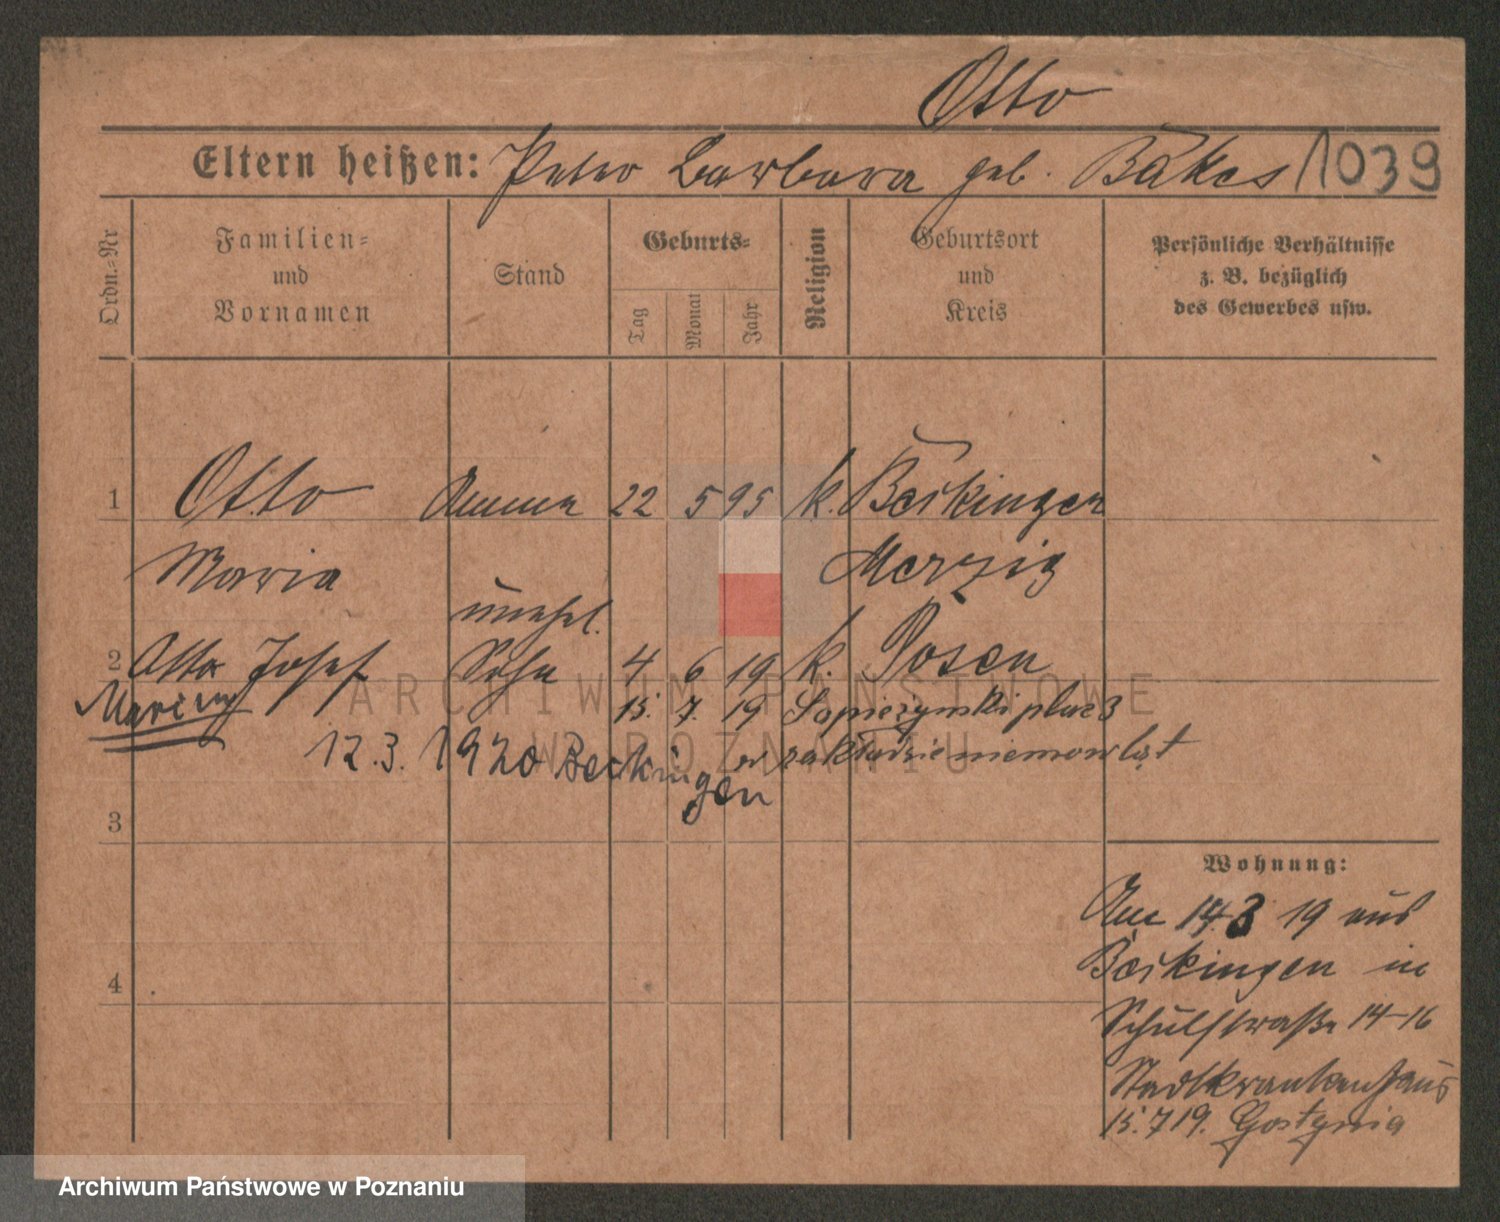 Otto
Eltern heißen: Peter Barbara geb. Bäkes 1039
Ordn.-Nr
Familien- und Vornamen
Stand
Geburts-
Tag
Monat
Jahr
Religion
Geburtsort und Kreis
Persönliche Verhältnisse
z. B. bezüglich
des Gewerbes usw.
1 Otto Amme 22 5 95 k. Beckingen
Maria Merzig
unehel.
2 Otto Josef Sohn 4 6 19 k. Posen
15. 7. 19 Sapieżynski plac 3
12.3.1920 Beckingen w zakładzie niemowląt
3
4
Wohnung:
Am 14.3 19 aus
Beckingen in
Schulstraße 14-16
Stadtkrankenhaus
15.7 19. Gostynia
ARCHIWUM PAŃSTWOWE
W POZNANIU
Archiwum Państwowe w Poznaniu